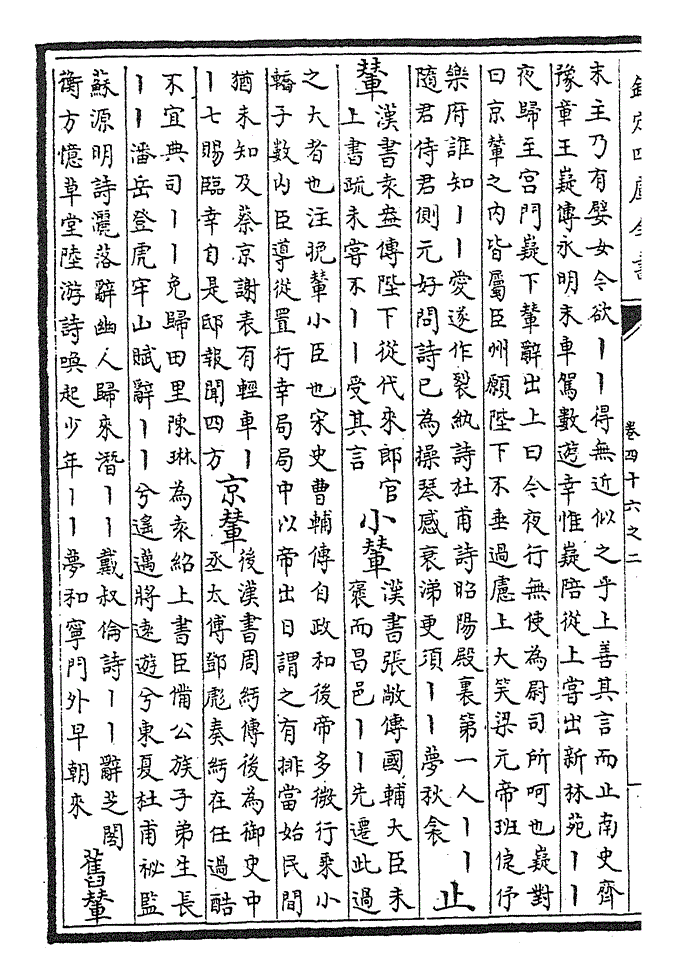 欽定四庫全書
卷四十六之二
末主乃有嬖女今欲丨丨得無近似之乎上善其言而止南史齊
豫章王嶷傳永明末車駕數遊幸惟嶷陪從上嘗出新林苑丨丨
夜歸至宮門嶷下輦辭出上曰今夜行無使為尉司所呵也嶷對
曰京輦之內皆屬臣州願陛下不垂過慮上大笑梁元帝班倢伃
樂府誰知丨丨愛遂作裂紈詩杜甫詩昭陽殿裏第一人丨丨
隨君侍君側元好問詩已為操琴感衰涕更須丨丨夢秋衾
止
輦
漢書袁盎傳陛下從代來郎官
上書疏未嘗不丨丨受其言
小輦
漢書張敞傳國輔大臣未
褒而昌邑丨丨先遷此過
之大者也注輓輦小臣也宋史曹輔傳自政和後帝多微行乘小
轎子數内臣導從置行幸局局中以帝出日謂之有排當始民間
猶未知及蔡京謝表有輕車丨
丨七賜臨幸自是邸報聞四方
京輦
後漢書周紆傳後為御史中
丞太傅鄧彪奏紆在任過酷
不宜典司丨丨免歸田里陳琳為袁紹上書臣備公族子弟生長
丨丨潘岳登虎牢山賦辭丨丨兮遙邁將遠遊兮東夏杜甫祕監
蘇源明詩灑落辭幽人歸來潛丨丨戴叔倫詩丨丨辭芝閣
衡方憶草堂陸游詩喚起少年丨丨夢和寧門外早朝來
舊輦